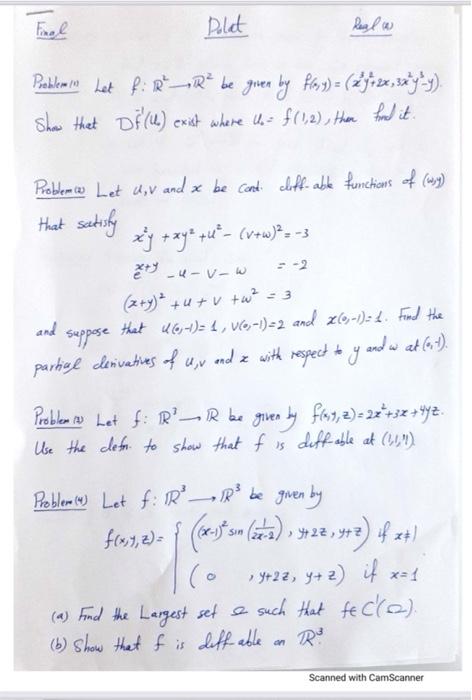 Final Dolat Real (2)
Problem(1) Let f: ℝ² → ℝ² be given by f(x,y) = (x³y²+2x, 3x²y³-y).
Show that Df⁻¹(u₀) exist where u₀ = f(1,2), then find it.
Problem(2) Let u,v and x be cont. diff-able functions of (w,y)
that satisfy
x²y + xy² + u² - (v+w)² = -3
e^(x+y) - u - v - w = -2
(x+y)² + u + v + w² = 3
and suppose that u(0,-1) = 1, v(0,-1) = 2 and x(0,-1) = 1. Find the
partial derivatives of u,v and x with respect to y and w at (0,-1).
Problem(3) Let f: ℝ³ → ℝ be given by f(x,y,z) = 2x²+3x+4yz.
Use the defn. to show that f is diff-able at (1,1,1)
Problem(4) Let f: ℝ³ → ℝ³ be given by
f(x,y,z) = { ((x-1)² sin(1/(2x-2)), y+2z, y+z) if x≠1
(0, y+2z, y+z) if x=1
(a) Find the Largest set Ω such that f∈C'(Ω).
(b) Show that f is diff-able on ℝ³.
Scanned with CamScanner